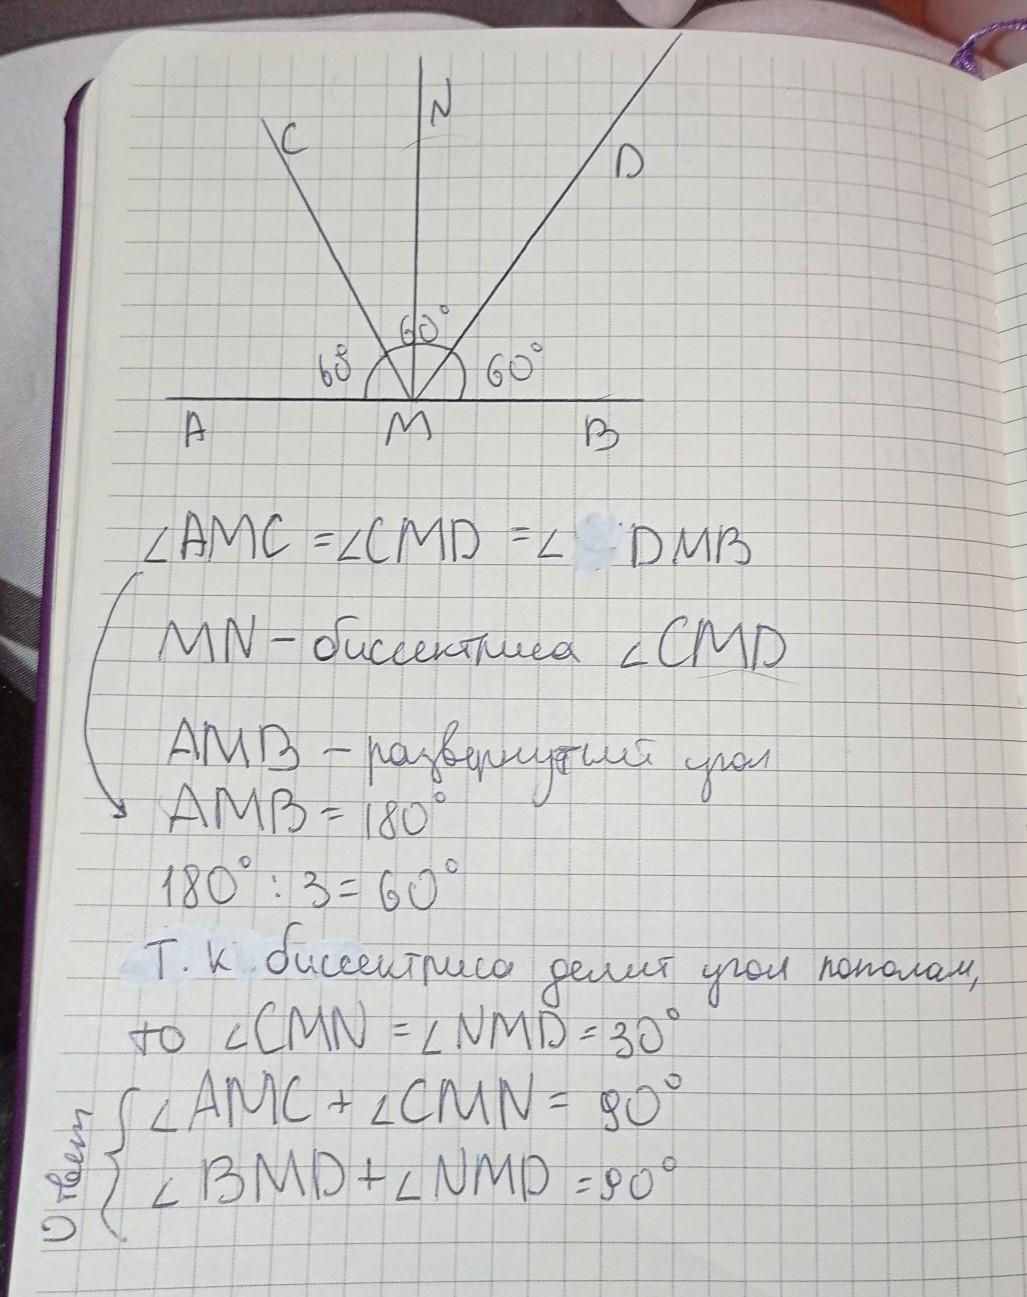 C
N
D
60°
60°
60°
A
M
B
∠AMC = ∠CMD = ∠ DMB
MN – биссектриса ∠CMD
AMB – развернутый угол
AMB = 180°
180° : 3 = 60°
Т. к. биссектриса делит угол пополам,
то ∠CMN = ∠NMD = 30°
Ответ
∠AMC + ∠CMN = 90°
∠BMD + ∠NMD = 90°